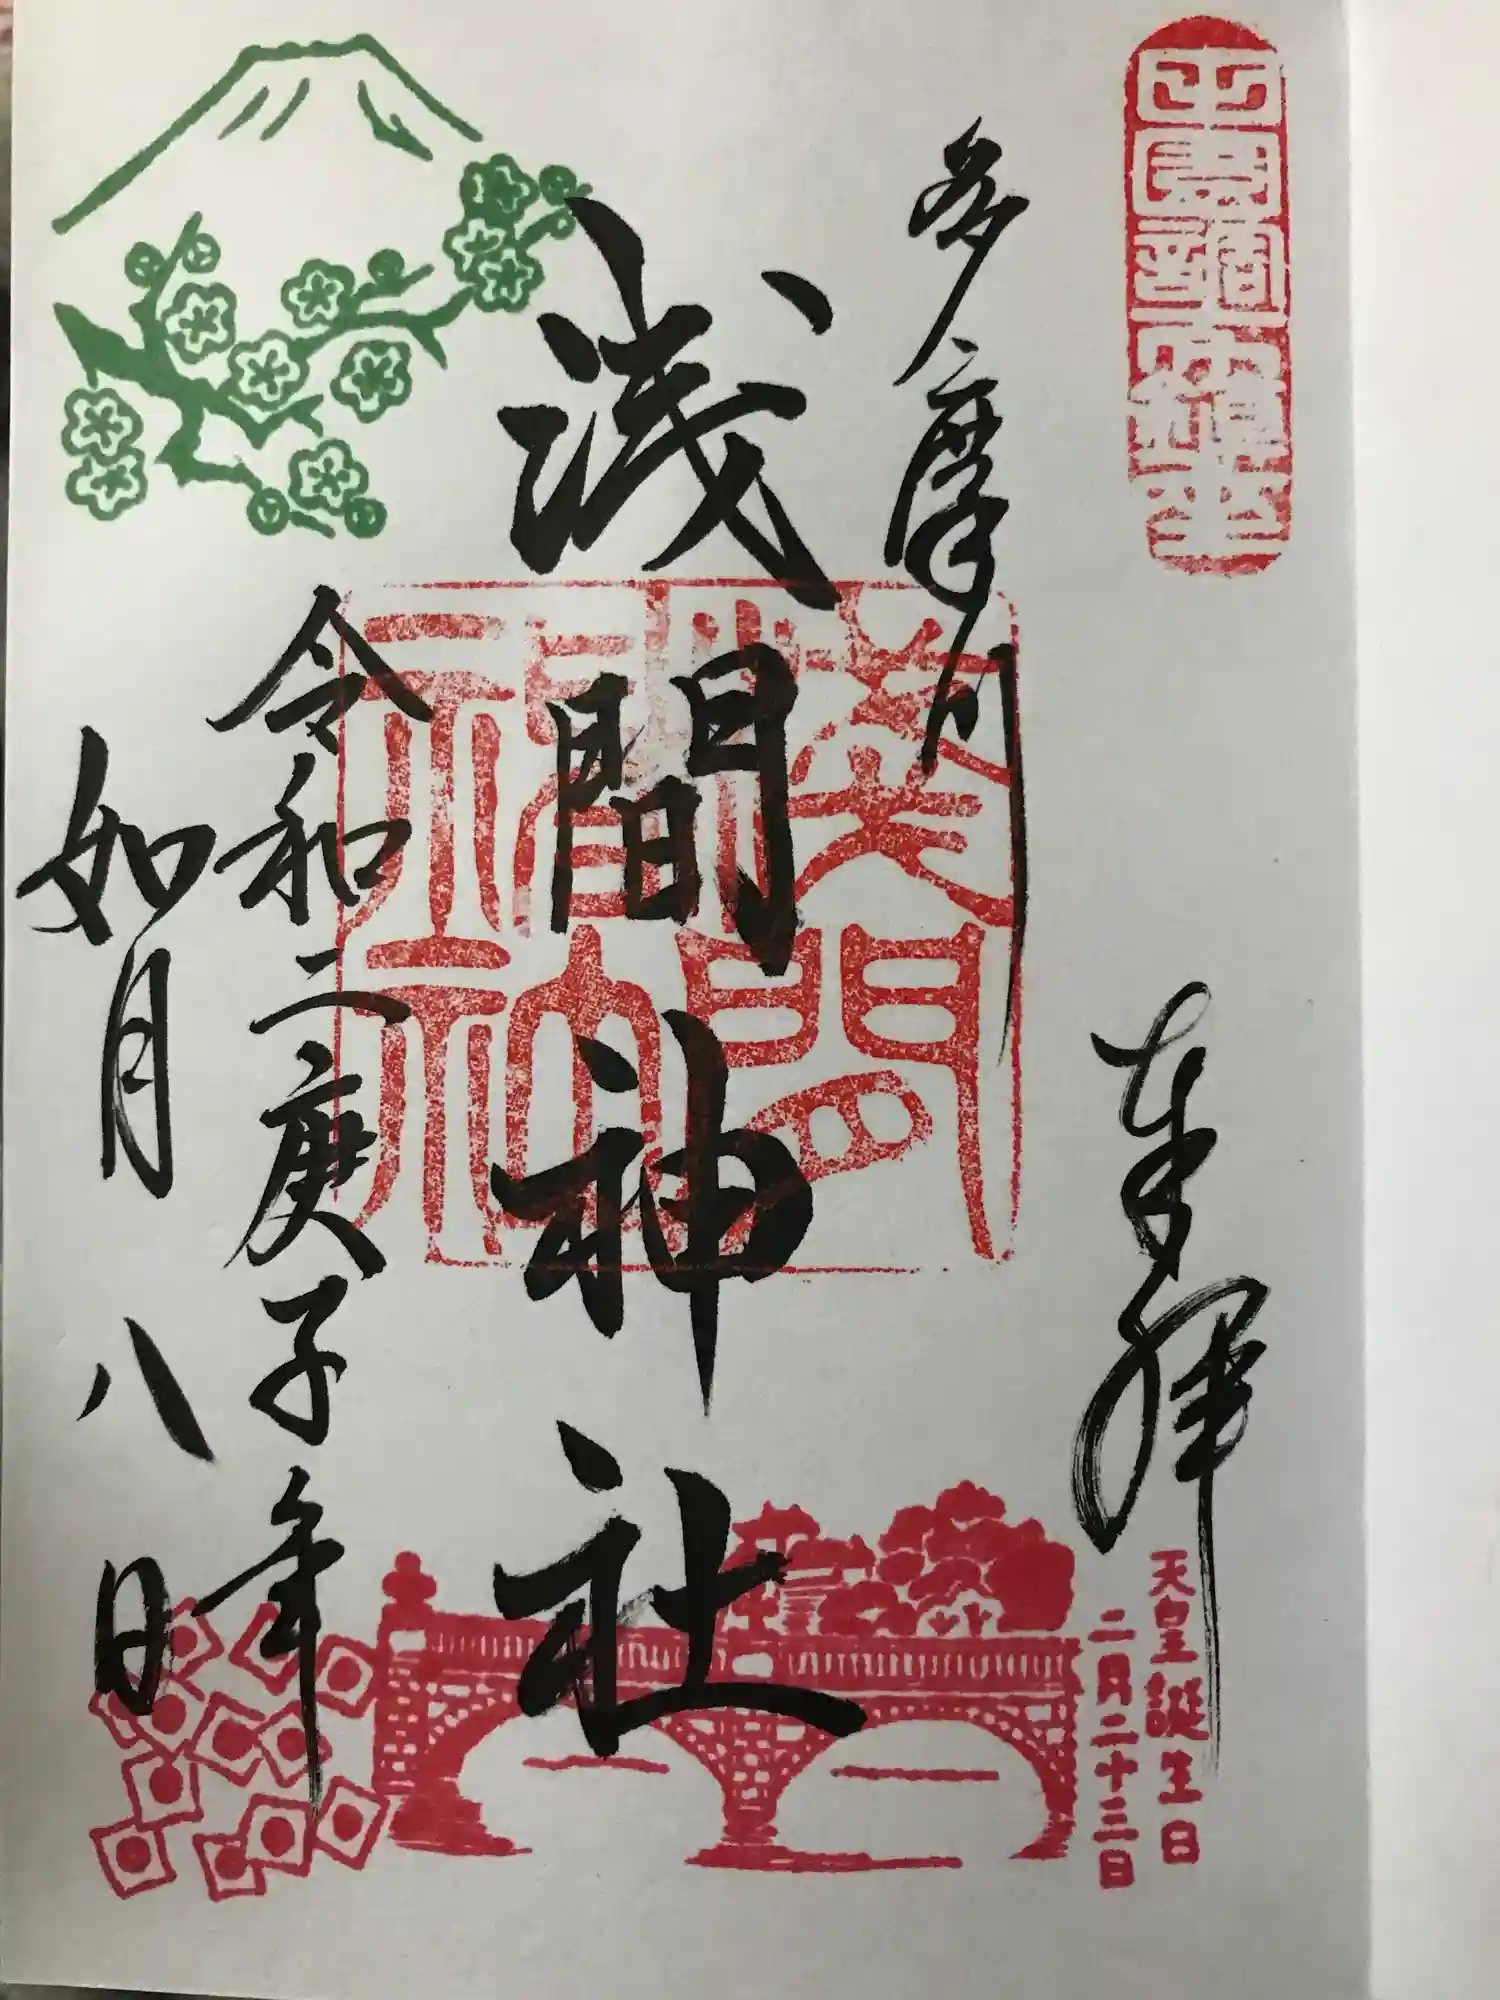 奉拝
天皇誕生日
二月二十三日
多摩川
浅間神社
淺間神社
令和二庚子年
如月八日